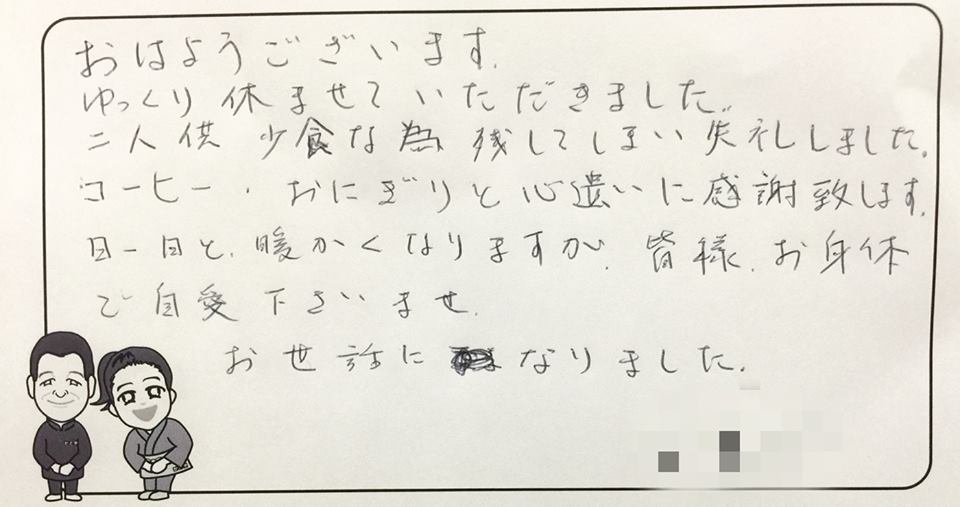 おはようございます.
ゆっくり休ませていただきました。
二人供 少食な為 残してしまい失礼しました.
コーヒー・おにぎりと心遣いに感謝致します.
日一日と、暖かくなりますが、皆様、お身休
ご自愛下さいませ.
お世話に なりました.